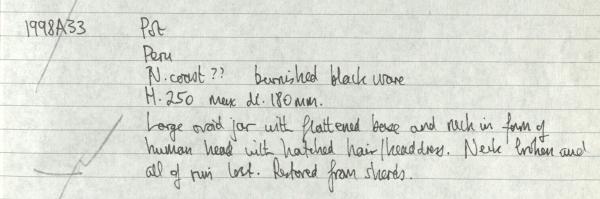 1998A33 Pot
Peru
N. coast ?? burnished black ware
H. 250 max d. 180mm.
Large ovoid jar with flattened base and neck in form of
human head with hatched hair/headdress. Neck broken and
all of rim lost. Restored from sherds.